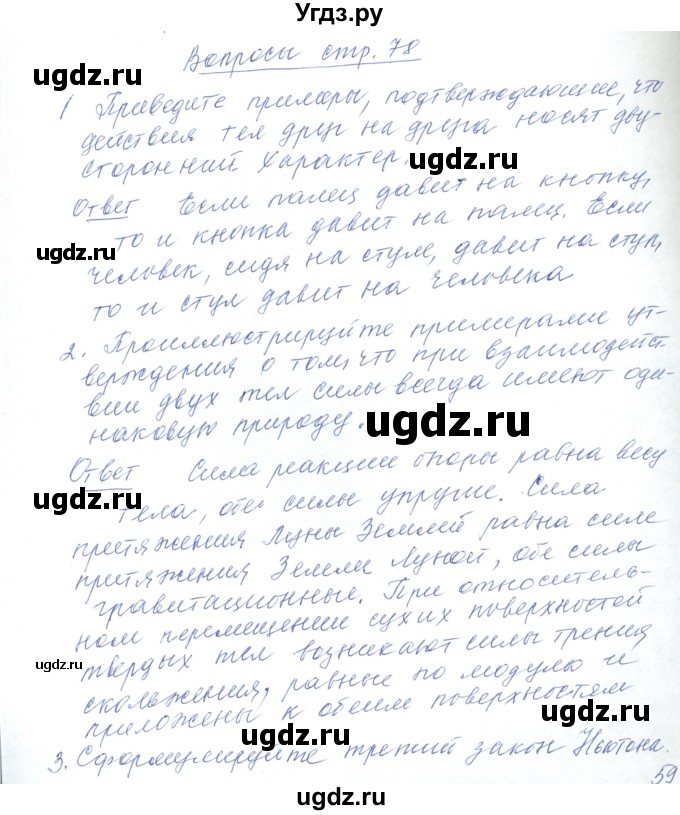 Угдз.ру
Вопросы стр. 78
ugdz.ru
1 Приводите примеры, подтверждающие, что
ugdz.ru
действия тел друг на друга носят дву-
сторонний характер.
ugdz.ru
Ответ Если палец давит на кнопку,
то и кнопка давит на палец. Если
ugdz.ru
человек, сидя на стуле, давит на стул,
то и стул давит на человека
2. Проиллюстрируйте примерами ут-
верждения о том, что при взаимодейст-
ugdz.ru
вии двух тел силы всегда имеют оди-
наковую природу.
ugdz.ru
Ответ Сила реакции опоры равна весу
ugdz.ru
тела, обе силы упруги. Сила
притяжения Луны Землей равна силе
притяжения Земли Луной, обе силы
гравитационные. При относитель-
ном перемещении сухих поверхностей
ugdz.ru
твердых тел возникают силы трения
скольжения, равные по модулю и
приложены к обеим поверхностям
ugdz.ru
3. Сформулируйте третий закон Ньютона.
59
ugdz.ru